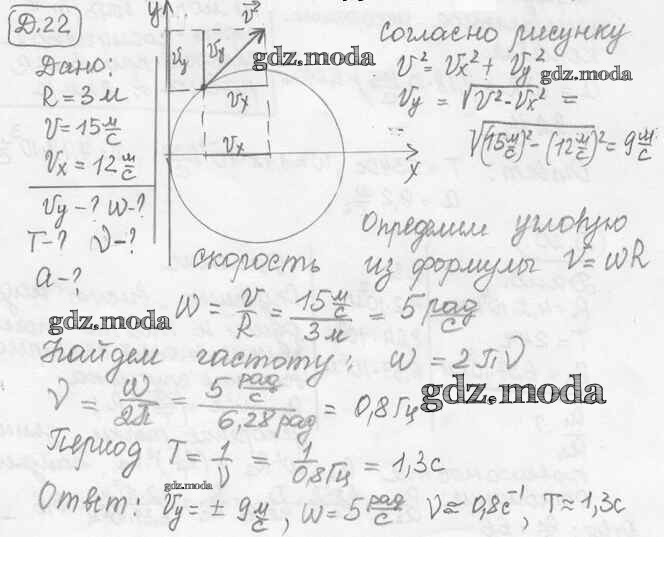 Д.22
Дано:
R = 3 м
V = 15 м/с
Vx = 12 м/с
Vy - ? ω - ?
T - ? ν - ?
a - ?
y
V
Vy
Vy
Vx
Vx
x
gdz.moda
Согласно рисунку
V² = Vx² + Vy²
gdz.moda
Vy = √(V² - Vx²) =
√((15 м/с)² - (12 м/с)²) = 9 м/с
Определим угловую
скорость из формулы V = ωR
ω = V/R = 15 м/с / 3 м = 5 рад/с
gdz.moda
Найдем частоту: ω = 2πν
ν = ω/2π = 5 рад/с / 6,28 рад = 0,8 Гц
gdz.moda
Период T = 1/ν = 1/0,8 Гц = 1,3 с
gdz.moda
Ответ: Vy = ± 9 м/с, ω = 5 рад/с ν ≈ 0,8 с⁻¹, T ≈ 1,3 с